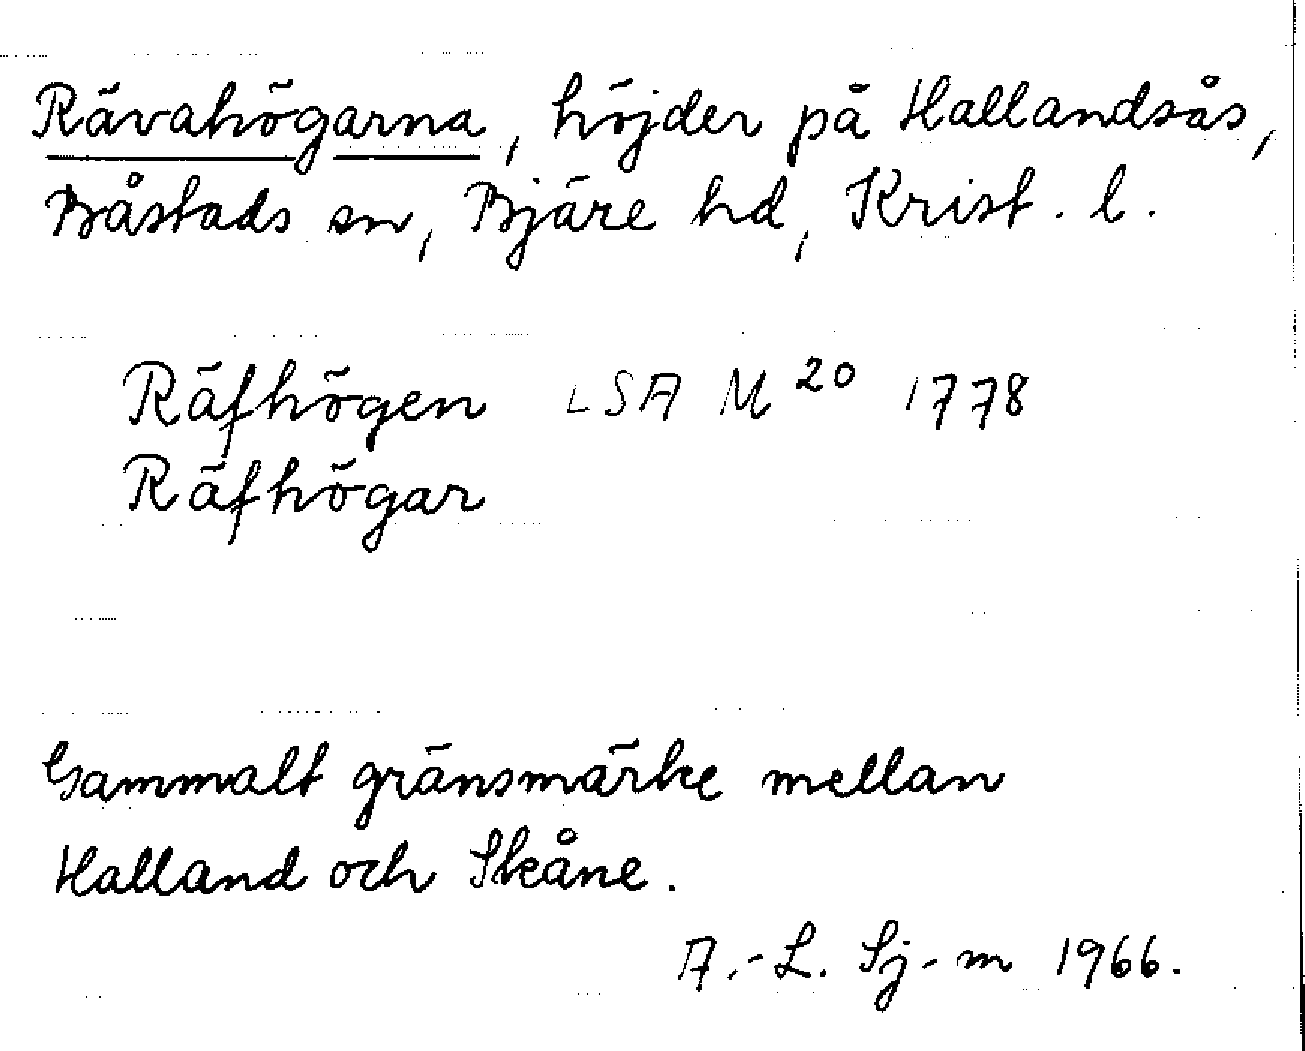 Rävahögarna, höjder på Hallandsås,
Båstads sn, Bjäre hd, Krist. l.
Räfhögen LSA M 20 1778
Räfhögar
Gammalt gränsmärke mellan
Halland och Skåne.
A.-L. Sj-m 1966.